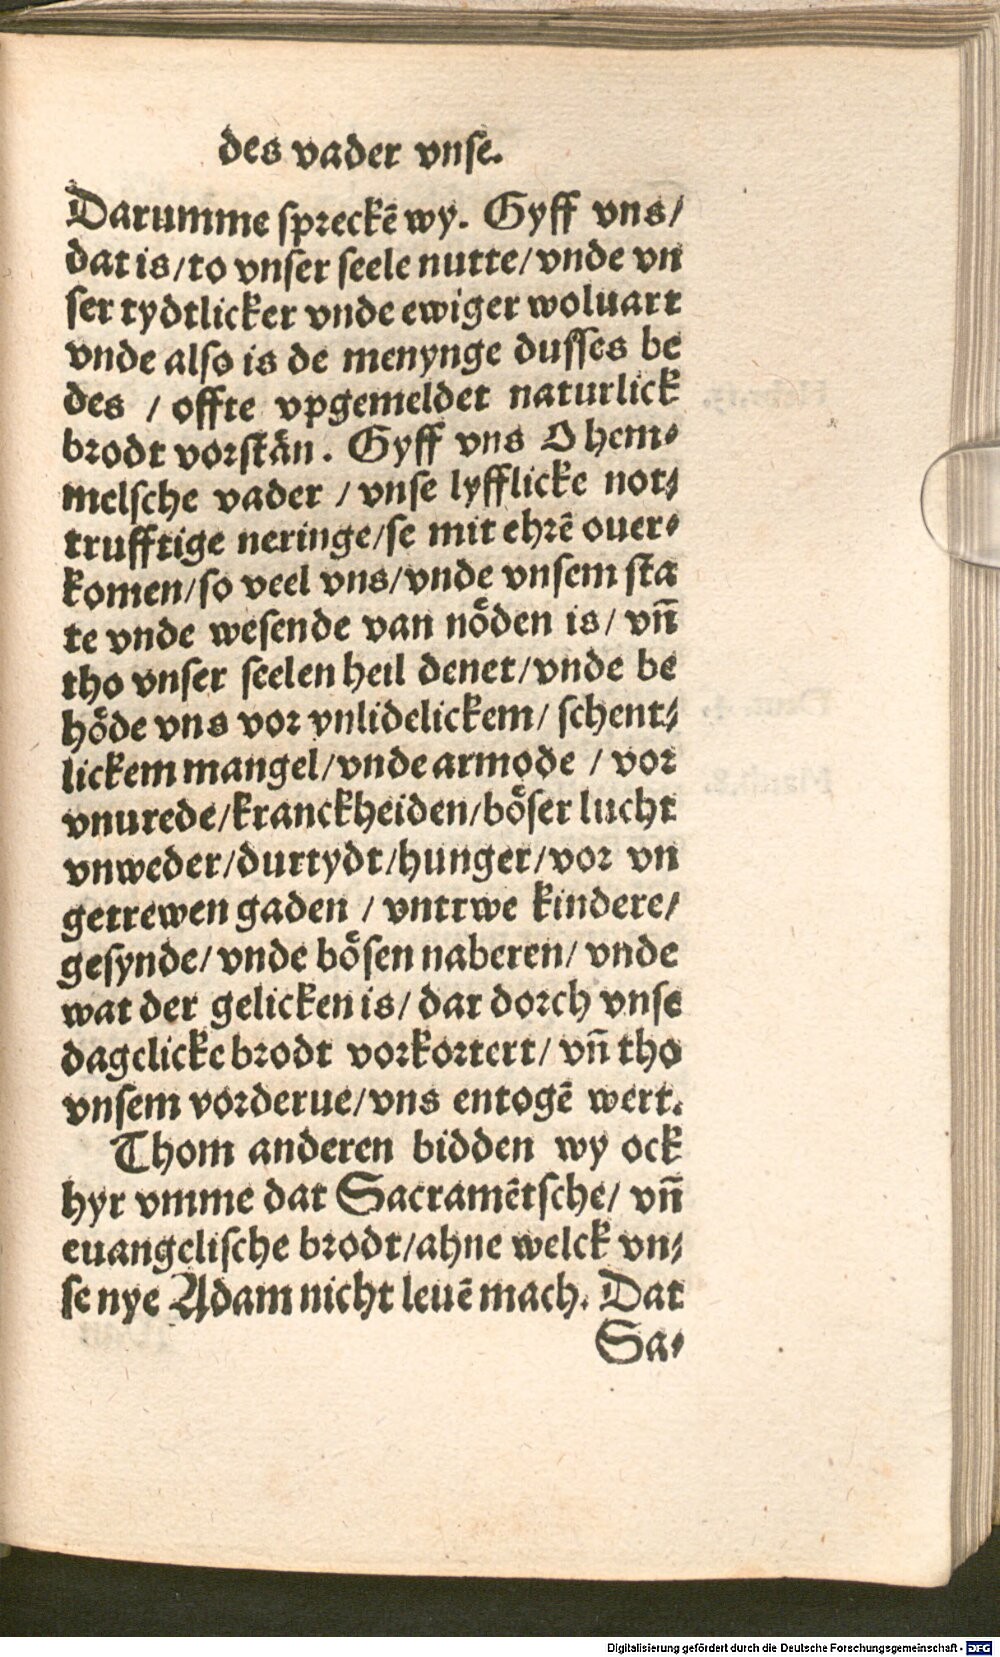 des vader vnse.
Darumme spreckē wy. Gyff vns/
dat is/to vnser seele nutte/vnde vn
ser tydtlicker vnde ewiger woluart
vnde also is de menynge dusses be
des / offte vpgemeldet naturlick
brodt vorstān. Gyff vns O hem⸗
melsche vader / vnse lyfflicke not⸗
trufftige neringe/se mit ehrē ouer⸗
komen/so veel vns/vnde vnsem sta
te vnde wesende van nöden is/ vn̄
tho vnser seelen heil denet/vnde be
höde vns vor vnlidelickem/ schent⸗
lickem mangel/vnde armode / vor
vnurede/kranckheiden/böser lucht
vnweder/durtydt/hunger/vor vn
getrewen gaden / vntrwe kindere/
gesynde/ vnde bösen naberen/ vnde
wat der gelicken is/ dar dorch vnse
dagelicke brodt vorkortert/ vn̄ tho
vnsem vorderue/vns entogē wert.
Thom anderen bidden wy ock
hyr vmme dat Sacramētsche/ vn̄
euangelische brodt/ahne welck vn⸗
se nye Adam nicht leuē mach. Dat
Sa⸗
Digitalisierung gefördert durch die Deutsche Forschungsgemeinschaft - DFG